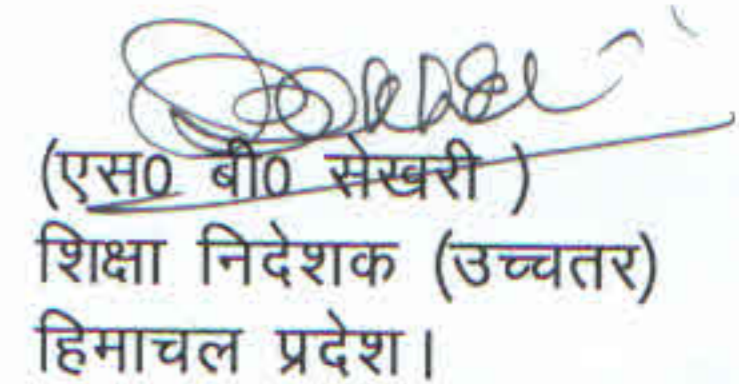 (एस0 बी0 सेखरी )
शिक्षा निदेशक (उच्चतर)
हिमाचल प्रदेश।